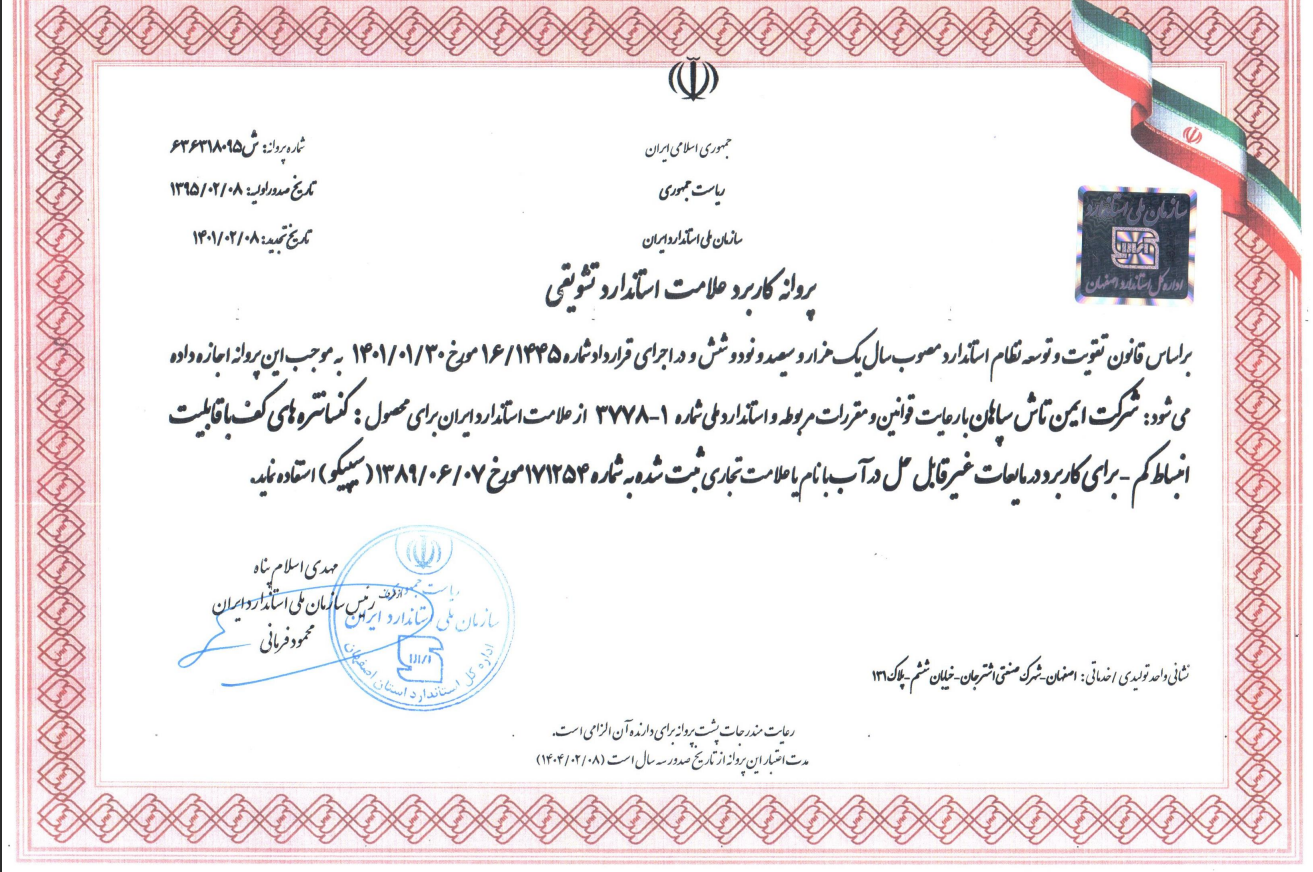 جمهوری اسلامی ایران
ریاست جمهوری
سازمان ملی استاندارد ایران
شماره پروانه: ش۶۳۶۳۱۸۰۹۵
تاریخ صدور اولیه: ۱۳۹۵/۰۲/۰۸
تاریخ تجدید: ۱۴۰۱/۰۲/۰۸
سازمان ملی استاندارد
اداره کل استاندارد اصفهان
پروانه کاربرد علامت استاندارد تشویقی
براساس قانون تقویت و توسعه نظام استاندارد مصوب سال یک هزار و سیصد و نود و شش و در اجرای قرارداد شماره ۱۶/۱۴۴۵ مورخ ۱۴۰۱/۰۱/۳۰ به موجب این پروانه اجازه داده
می شود: شرکت ایمن تاش سپاهان با رعایت قوانین و مقررات مربوطه و استاندارد ملی شماره ۱-۳۷۷۸ از علامت استاندارد ایران برای محصول : کنسانتره های کف با قابلیت
انبساط کم - برای کاربرد در مایعات غیر قابل حل در آب با نام یا علامت تجاری ثبت شده به شماره ۱۷۱۲۵۴ مورخ ۱۳۸۹/۰۶/۰۷ ( سپیکو ) استفاده نماید.
مهدی اسلام پناه
از طرف رئیس سازمان ملی استاندارد ایران
محمود فرمانی
ریاست جمهوری
سازمان ملی استاندارد ایران
اداره کل استاندارد استان اصفهان
نشانی واحد تولیدی / خدماتی : اصفهان-شهرک صنعتی اشترجان-خیابان ششم-پلاک ۱۳۱
رعایت مندرجات پشت پروانه برای دارنده آن الزامی است.
مدت اعتبار این پروانه از تاریخ صدور سه سال است (۱۴۰۴/۰۲/۰۸)